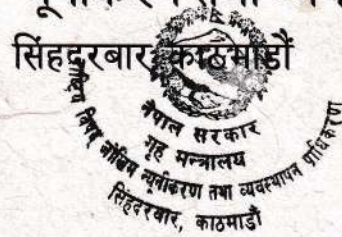 सिंहदरबार, काठमाडौं
नेपाल सरकार
गृह मन्त्रालय
राष्ट्रिय विपद् जोखिम न्यूनीकरण तथा व्यवस्थापन प्राधिकरण
सिंहदरबार, काठमाडौं